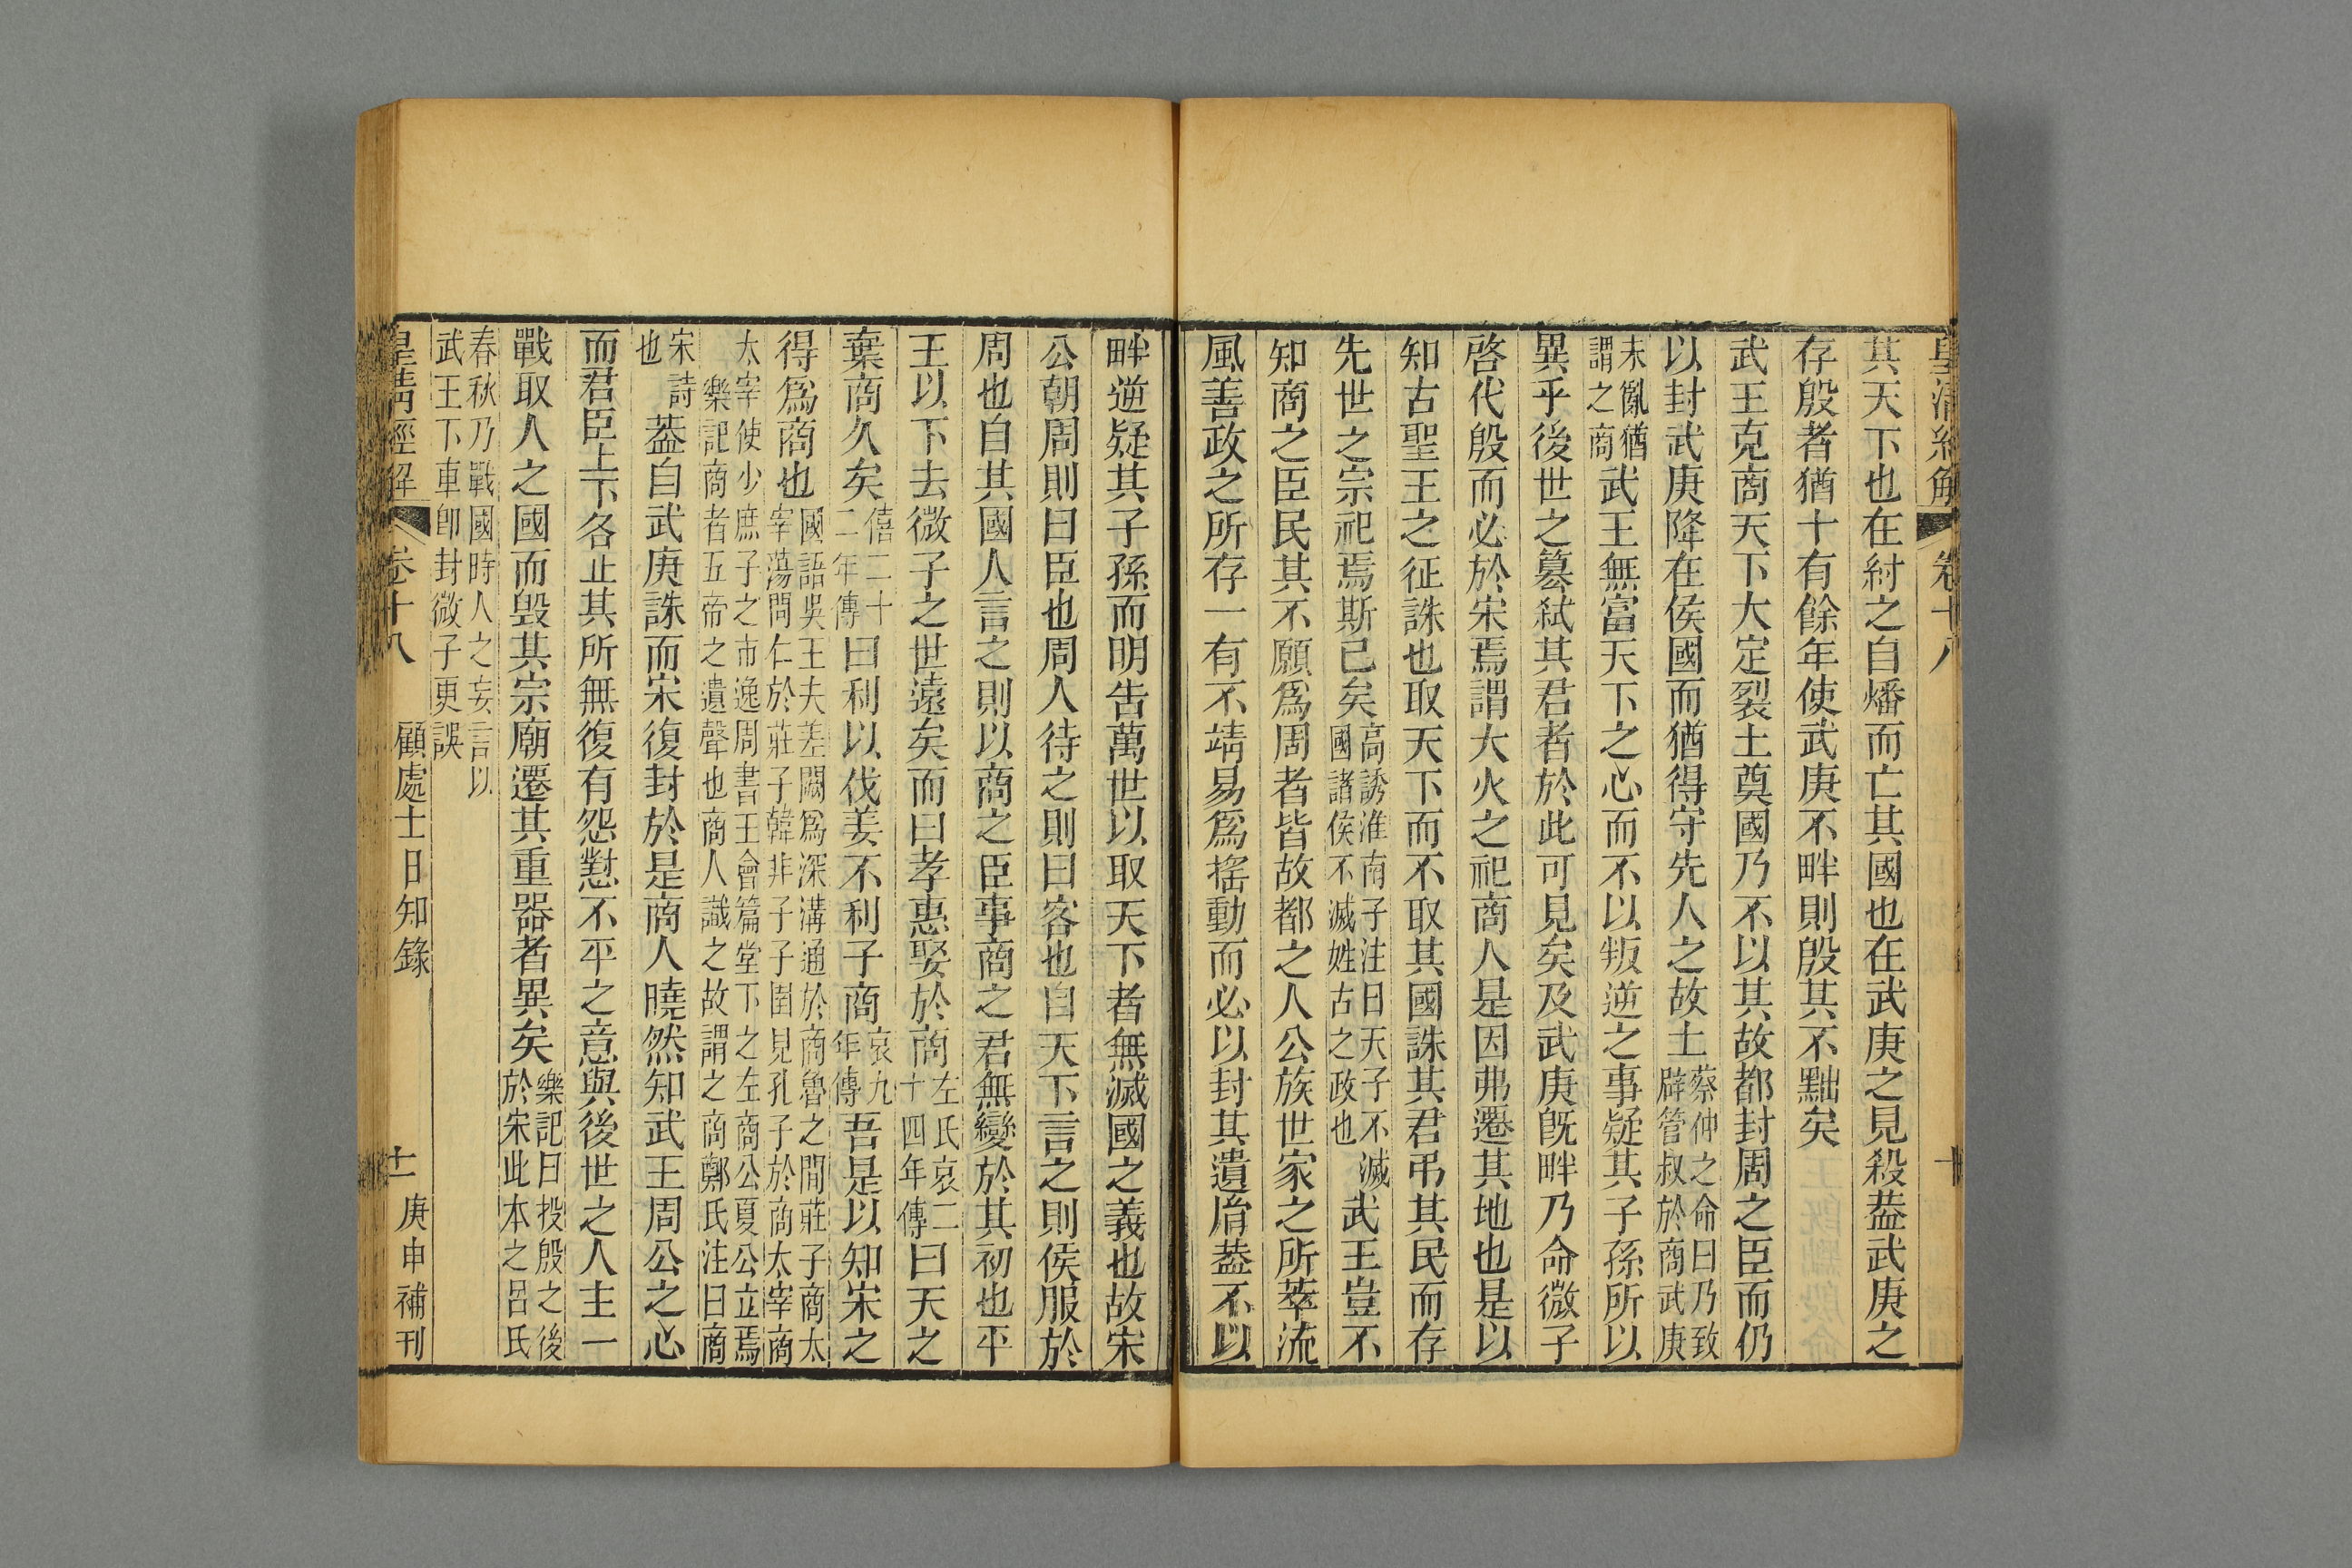 皇清經解 卷十八 十
其天下也在紂之自燔而亡其國也在武庚之見殺葢武庚之
存殷者猶十有餘年使武庚不畔則殷其不黜矣
武王克商天下大定裂土奠國乃不以其故都封周之臣而仍
以封武庚降在侯國而猶得守先人之故土蔡仲之命曰乃致辟管叔於商武庚
未亂猶謂之商武王無富天下之心而不以叛逆之事疑其子孫所以
異乎後世之簒弑其君者於此可見矣及武庚旣畔乃命微子
啓代殷而必於宋焉謂大火之祀商人是因弗遷其地也是以
知古聖王之征誅也取天下而不取其國誅其君弔其民而存
先世之宗祀焉斯已矣高誘淮南子注曰天子不滅國諸侯不滅姓古之政也武王豈不
知商之臣民其不願爲周者皆故都之人公族世家之所萃流
風善政之所存一有不靖易爲搖動而必以封其遺胤葢不以
畔逆疑其子孫而明告萬世以取天下者無滅國之義也故宋
公朝周則曰臣也周人待之則曰客也自天下言之則侯服於
周也自其國人言之則以商之臣事商之君無變於其初也平
王以下去微子之世遠矣而曰孝惠娶於商左氏哀二十四年傳曰天之
棄商久矣僖二十二年傳曰利以伐姜不利子商哀九年傳吾是以知宋之
得爲商也國語吳王夫差闕爲深溝通於商魯之間莊子商太宰蕩問仁於莊子韓非子子圉見孔子於商太宰商
太宰使少庶子之市逸周書王會篇堂下之左商公夏公立焉樂記商者五帝之遺聲也商人識之故謂之商鄭氏注曰商
宋詩也葢自武庚誅而宋復封於是商人曉然知武王周公之心
而君臣上下各止其所無復有怨懟不平之意與後世之人主一
戰取人之國而毁其宗廟遷其重器者異矣樂記曰投殷之後於宋此本之呂氏
春秋乃戰國時人之妄言以武王下車卽封微子更誤
皇清經解 卷十八 顧處士日知錄 十一 庚申補刊